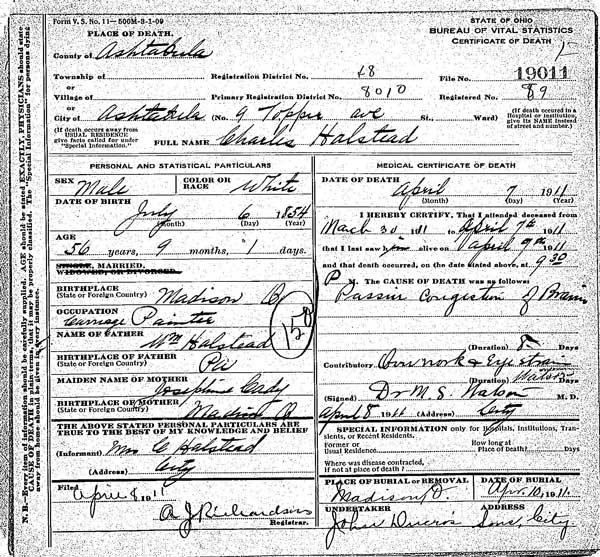 Form V. S. No. 11—500M-3-1-09
PLACE OF DEATH.
STATE OF OHIO
BUREAU OF VITAL STATISTICS
CERTIFICATE OF DEATH
County of Ashtabula
Township of
Registration District No. 48
File No. 19011
or
Village of
Primary Registration District No. 8010
Registered No. 89
or
City of Ashtabula (No. 9 Topper ave St., Ward)
(If death occured in a Hospital or institution, give its NAME instead of street and number.)
(If death occurs away from USUAL RESIDENCE give facts called for under "Special Information.")
FULL NAME Charles Halstead
PERSONAL AND STATISTICAL PARTICULARS
SEX Male
COLOR OR RACE White
DATE OF BIRTH
July 6 1854
(Month) (Day) (Year)
AGE
56 years, 9 months, 1 days.
SINGLE, MARRIED,
WIDOWED, OR DIVORCED
BIRTHPLACE
(State or Foreign Country) Madison O
OCCUPATION
Carriage Painter
NAME OF FATHER
Wm Halstead
BIRTHPLACE OF FATHER
(State or Foreign Country) Pa
MAIDEN NAME OF MOTHER
Josephine Cady
BIRTHPLACE OF MOTHER
(State or Foreign Country) Madison O
THE ABOVE STATED PERSONAL PARTICULARS ARE
TRUE TO THE BEST OF MY KNOWLEDGE AND BELIEF
(Informant) Mrs C Halstead
(Address) City
Filed
April 8 1911
A J Richardson
Registrar.
MEDICAL CERTIFICATE OF DEATH
DATE OF DEATH
April 7 1911
(Month) (Day) (Year)
I HEREBY CERTIFY, That I attended deceased from
March 30 1911 to April 7th 1911
that I last saw him alive on April 7th 1911
and that death occurred, on the date stated above, at 9 30
P M. The CAUSE OF DEATH was as follows:
Passive Congestion of Brain
(Duration) 8 Days
Contributory Overwork & Eye strain
(Duration) Days
(Signed) Dr M. S. Watson M. D.
April 8 1911 (Address) City
SPECIAL INFORMATION only for Hospitals, Institutions, Transients, or Recent Residents.
Former or
Usual Residence
How long at
Place of Death? Days
Where was disease contracted,
if not at place of death?
PLACE OF BURIAL OR REMOVAL
Madison O.
DATE OF BURIAL
Apr. 10, 1911.
UNDERTAKER
John Ducro's
ADDRESS
Sons, City.
N. B.—Every item of information should be carefully supplied. AGE should be stated EXACTLY. PHYSICIANS should state
CAUSE OF DEATH in plain terms, that it may be properly classified. The "Special Information" for persons dying
away from home should be given in every instance.